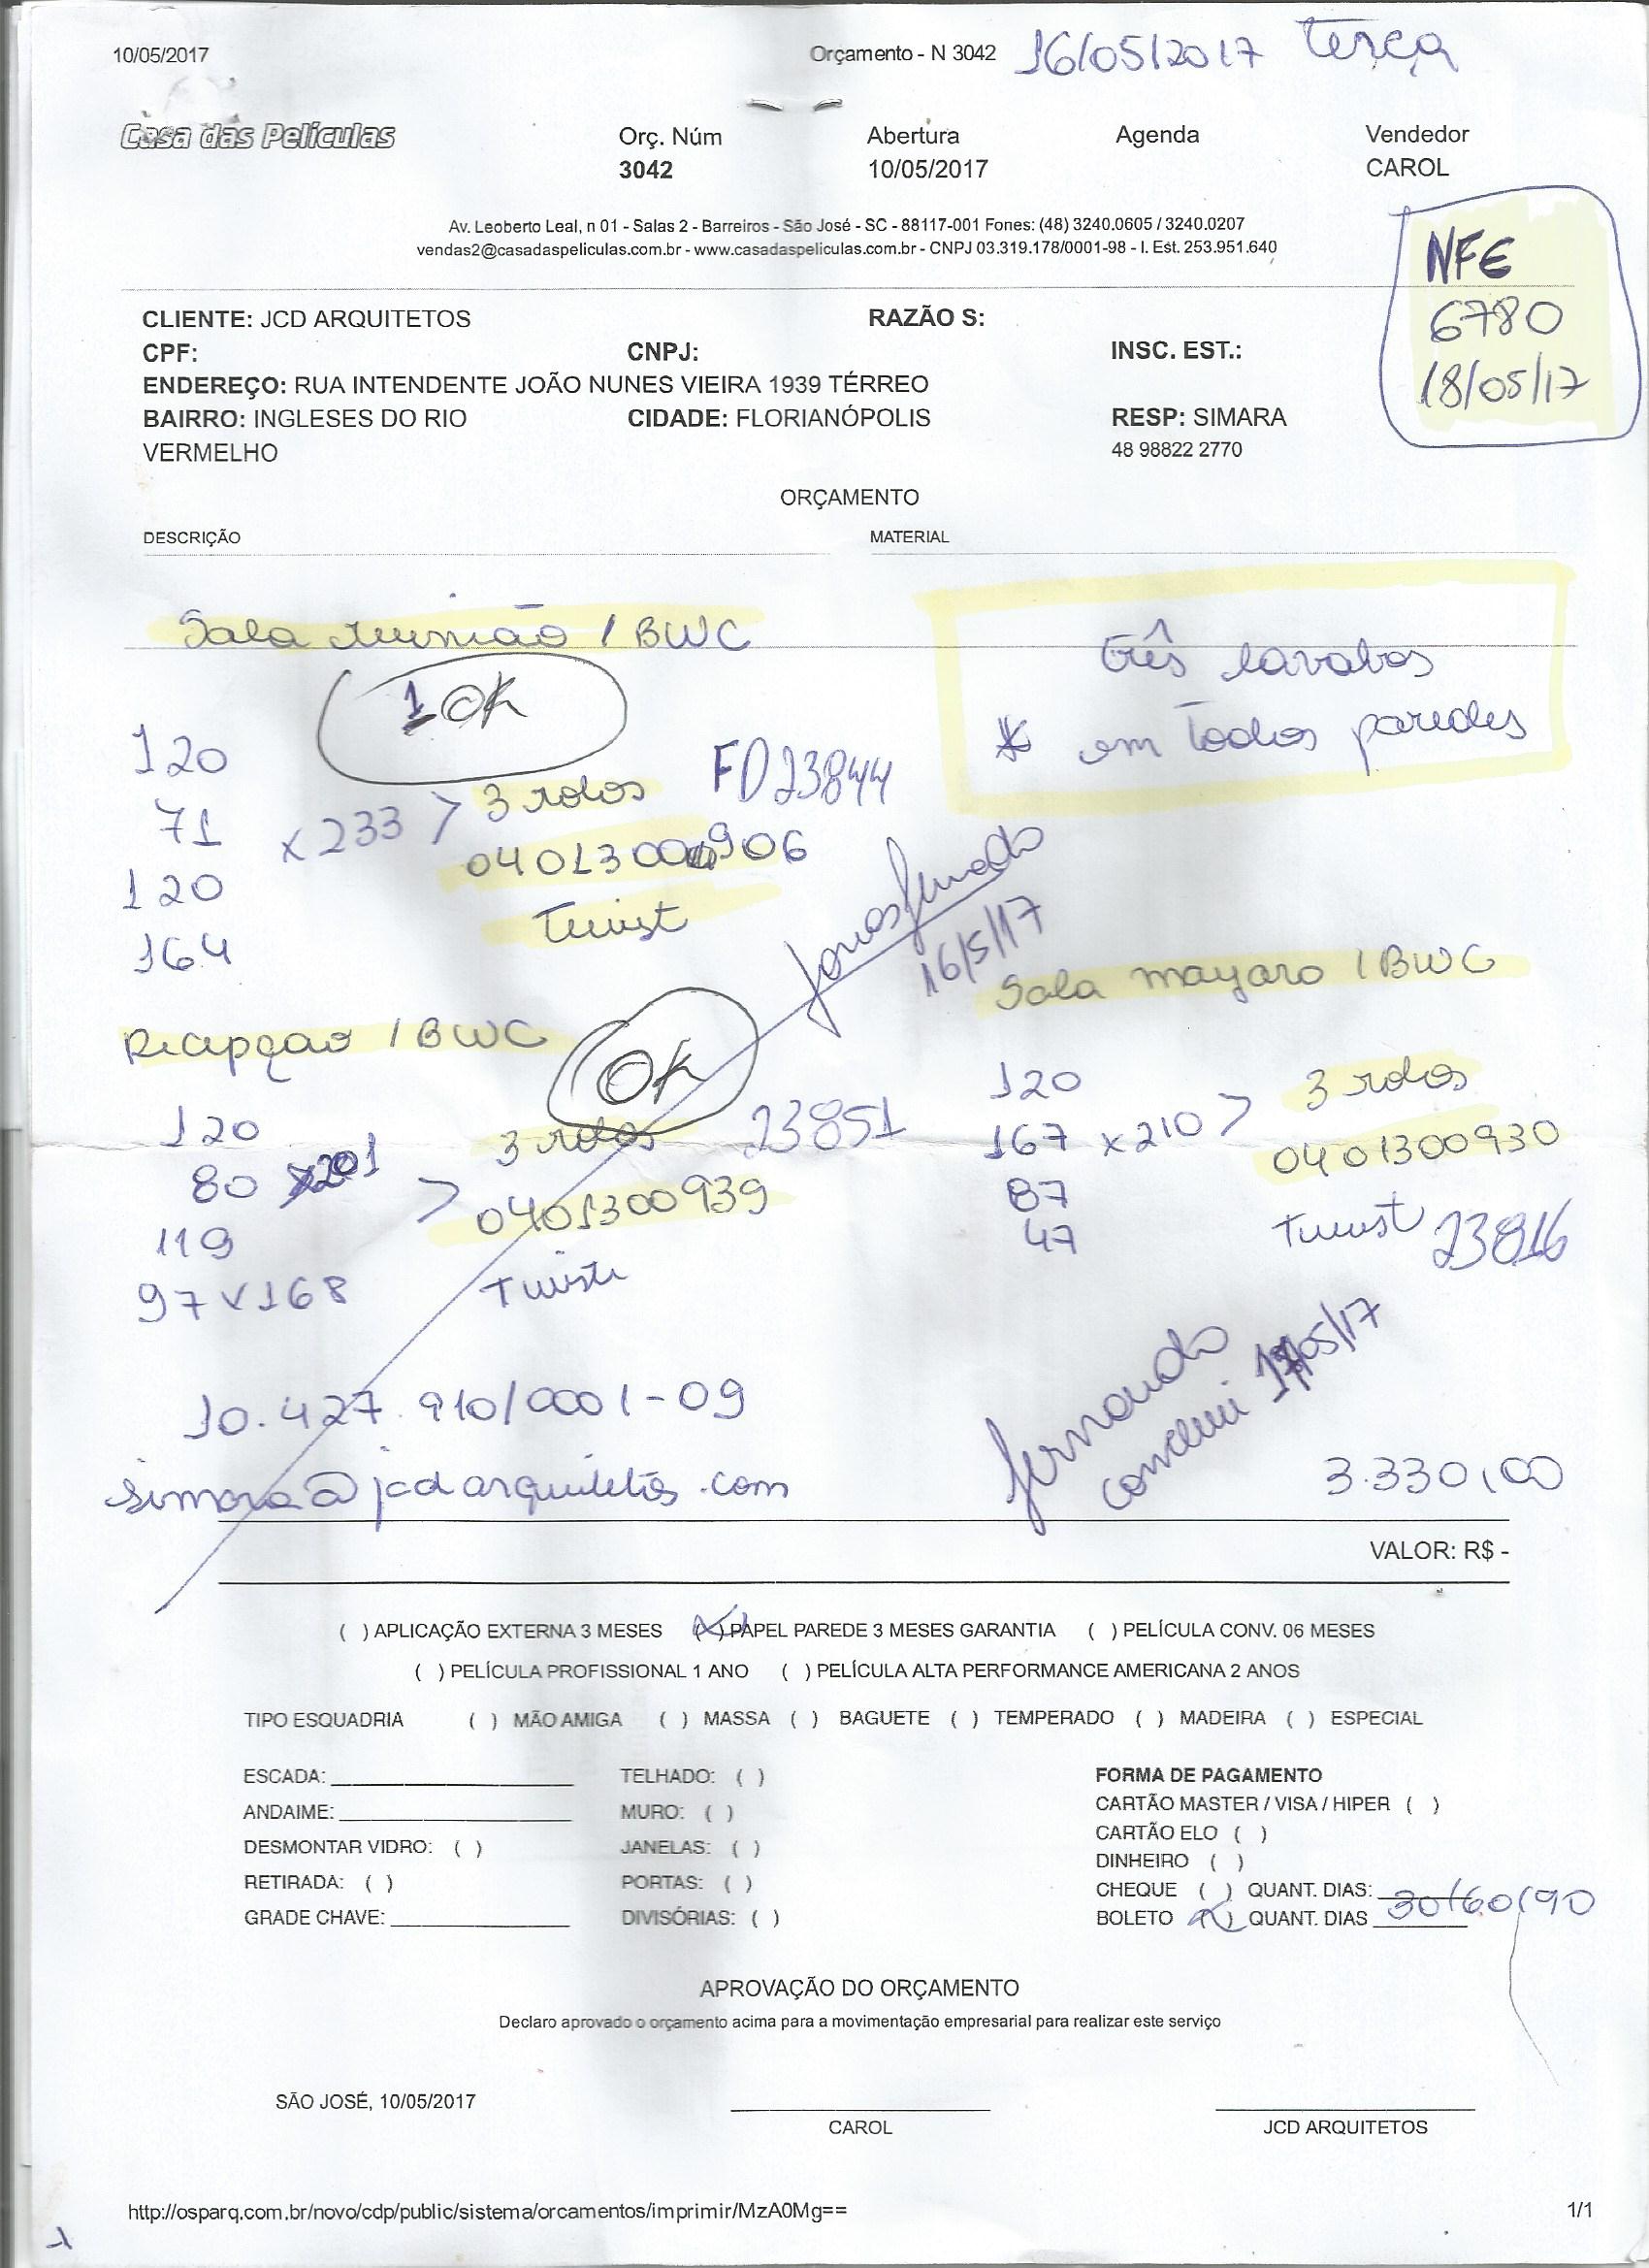 10/05/2017 Orçamento - N 3042 16/05/2017 Terça
Casa das Películas
Orç. Núm Abertura Agenda Vendedor
3042 10/05/2017 CAROL
Av. Leoberto Leal, n 01 - Salas 2 - Barreiros - São José - SC - 88117-001 Fones: (48) 3240.0605 / 3240.0207
vendas2@casadaspeliculas.com.br - www.casadaspeliculas.com.br - CNPJ 03.319.178/0001-98 - I. Est. 253.951.640
NFE
6780
18/05/17
CLIENTE: JCD ARQUITETOS RAZÃO S:
CPF: CNPJ: INSC. EST.:
ENDEREÇO: RUA INTENDENTE JOÃO NUNES VIEIRA 1939 TÉRREO
BAIRRO: INGLESES DO RIO CIDADE: FLORIANÓPOLIS RESP: SIMARA
VERMELHO 48 98822 2770
ORÇAMENTO
DESCRIÇÃO MATERIAL
Sala reunião / BWC
três lavabos
* em todos paredes
1 OK
120
71 x 233 > 3 rolos FD23844
120 906
164 Twist
16/5/17
Recepção / BWC
OK
120 3 rolos 23851
80 x201 > 0401300939
119 Twist
97 x 168
Sala mayara / BWC
120 3 rolos
167 x 210 > 0401300930
87 Twist
47
10.427.910/0001-09
simara@jcdarquitetos.com
Fernando
conclui /05/17
3.330,00
VALOR: R$ -
( ) APLICAÇÃO EXTERNA 3 MESES (X) PAPEL PAREDE 3 MESES GARANTIA ( ) PELÍCULA CONV. 06 MESES
( ) PELÍCULA PROFISSIONAL 1 ANO ( ) PELÍCULA ALTA PERFORMANCE AMERICANA 2 ANOS
TIPO ESQUADRIA ( ) MÃO AMIGA ( ) MASSA ( ) BAGUETE ( ) TEMPERADO ( ) MADEIRA ( ) ESPECIAL
ESCADA: TELHADO: ( ) FORMA DE PAGAMENTO
ANDAIME: MURO: ( ) CARTÃO MASTER / VISA / HIPER ( )
DESMONTAR VIDRO: ( ) JANELAS: ( ) CARTÃO ELO ( )
RETIRADA: ( ) PORTAS: ( ) DINHEIRO ( )
GRADE CHAVE: DIVISÓRIAS: ( ) CHEQUE ( ) QUANT. DIAS:
BOLETO (X) QUANT. DIAS 30/60/90
APROVAÇÃO DO ORÇAMENTO
Declaro aprovado o orçamento acima para a movimentação empresarial para realizar este serviço
SÃO JOSÉ, 10/05/2017
CAROL JCD ARQUITETOS
http://osparq.com.br/novo/cdp/public/sistema/orcamentos/imprimir/MzA0Mg== 1/1